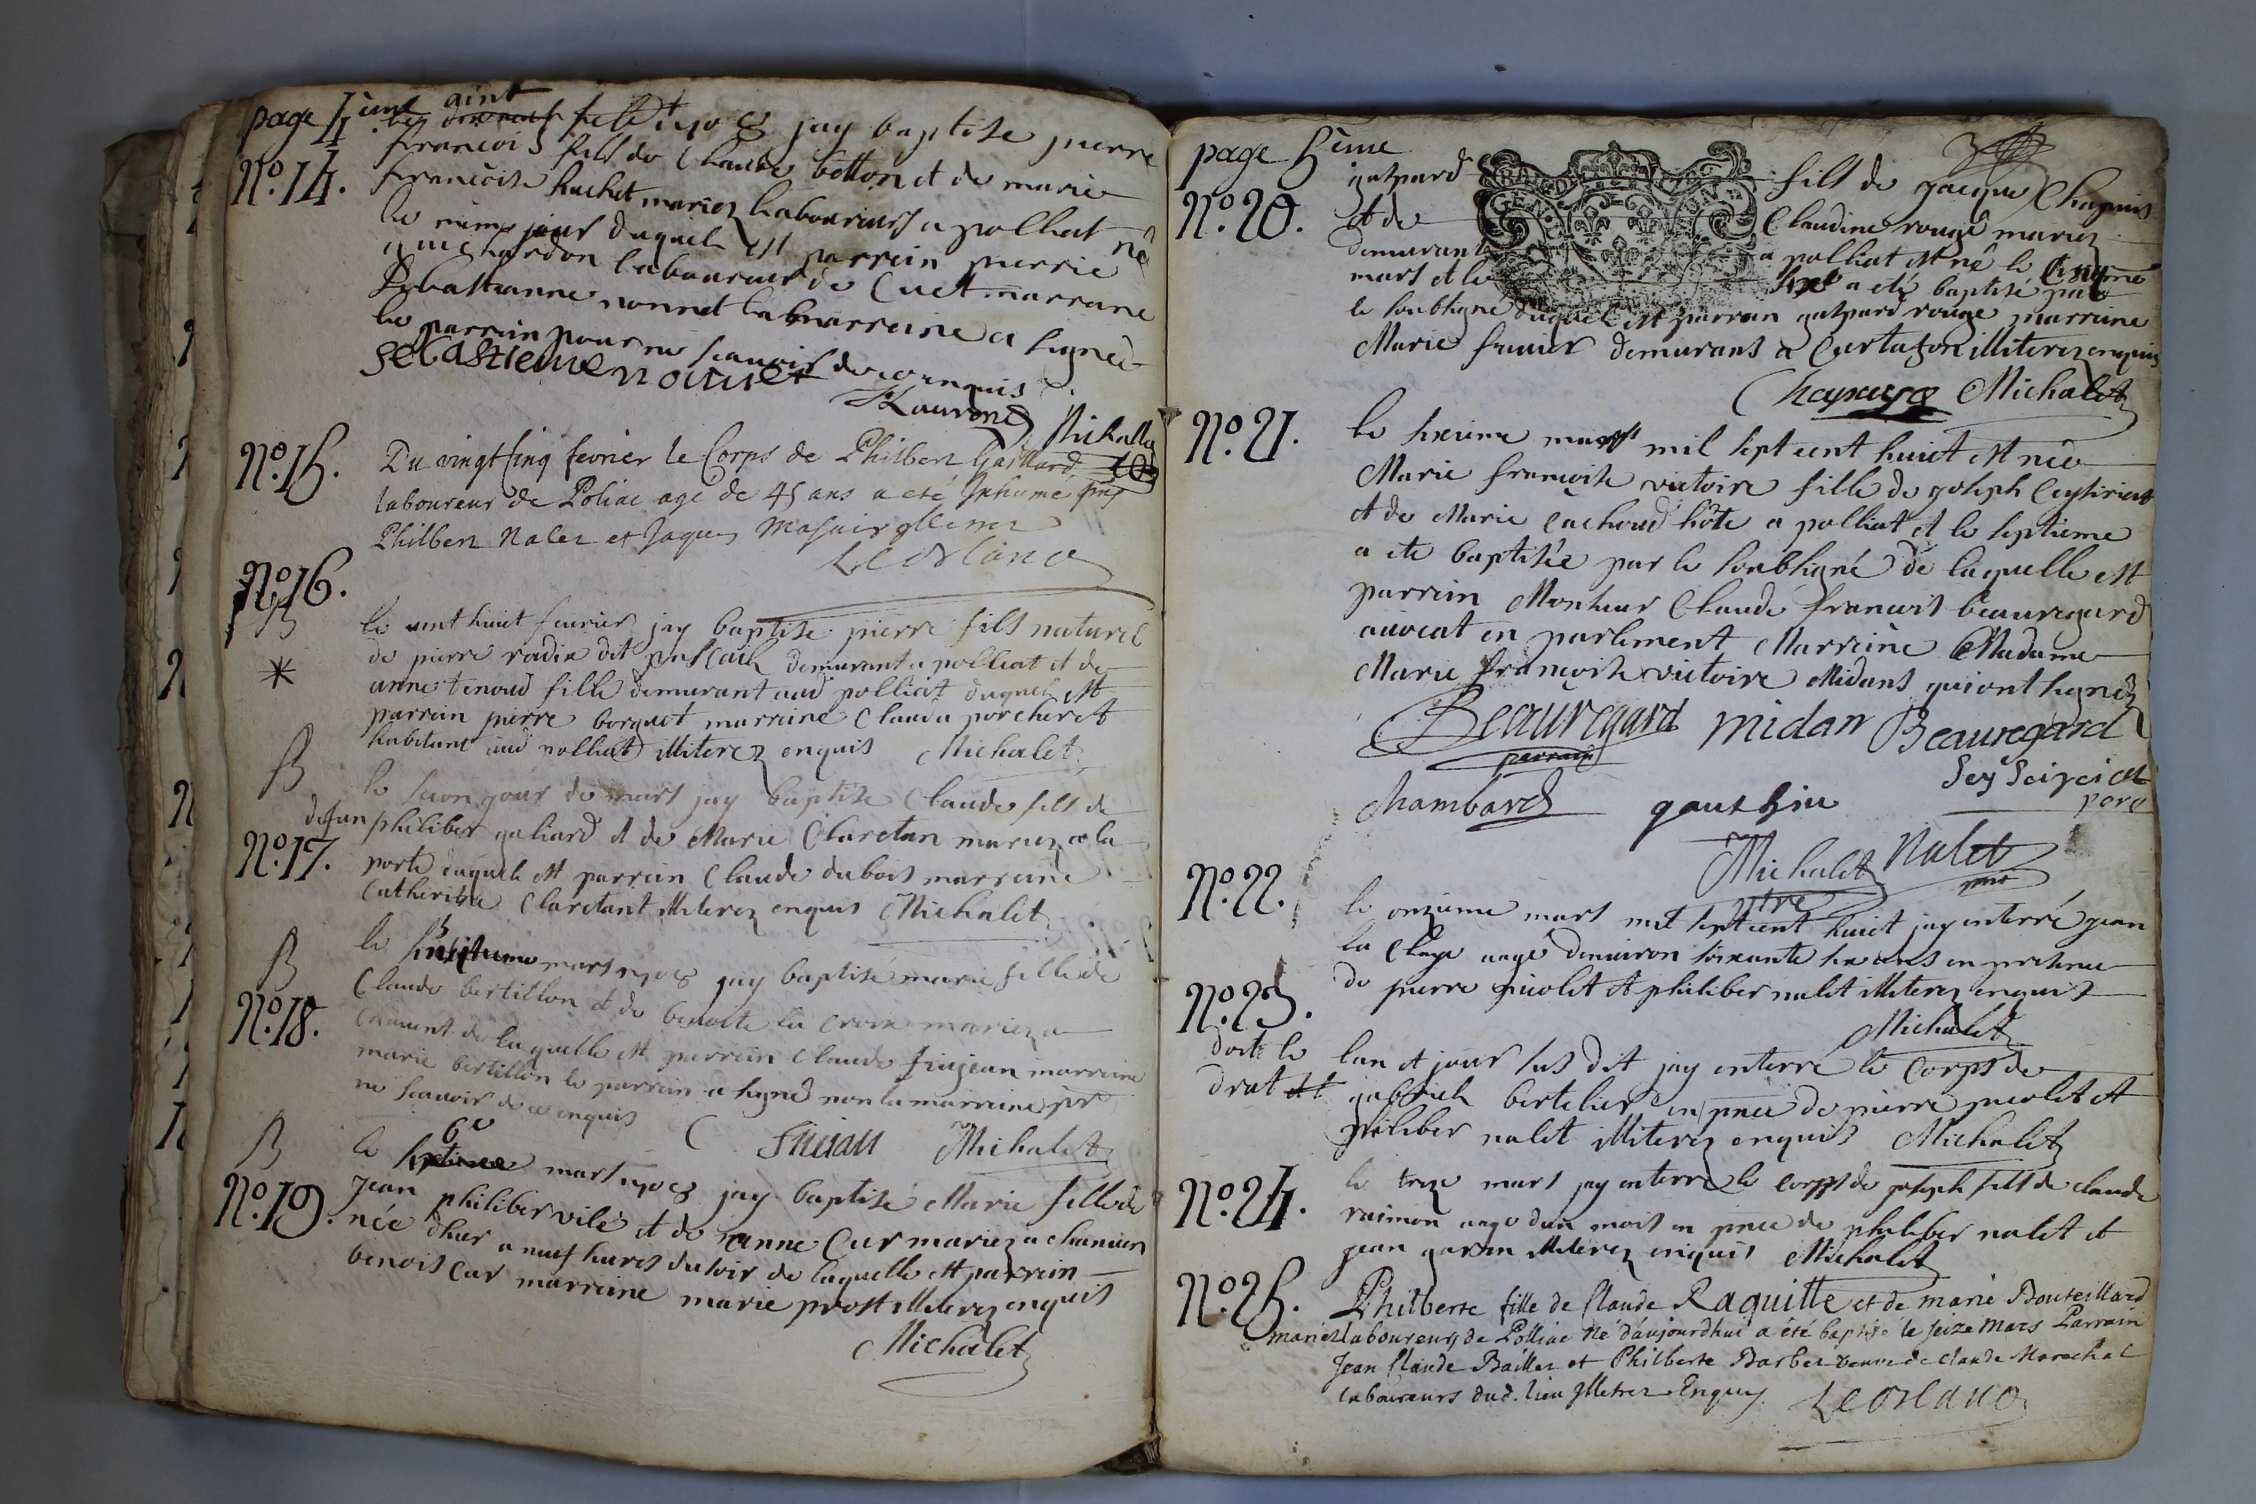 page 4ieme
aint
fevr 1708 jay baptise pierre
No. 14.
francois fils de Claude botton et de marie
francoise huchet mariez laboureurs a polliat né
le meme jour duquel est parrein pierre
chardon laboureur de Cuet marrene
sebastianne nonnet la marreine a signé
le parrein pour ne scauoir de ce enquis
sebastienne nonnet
Michallet
No. 15.
Du vingt cinq fevrier le Corps de Philbert Gaillard
laboureur de Poliac agé de 45 ans a eté Inhumé pns
Philbert Nalez et Jaques
Leorlano
No. 16.
B
*
le vint huit feurier jay baptise pierre fils naturel
de pierre rodix dit demurant a polliat et de
anne tenoud fille demurant aud polliat duquel est
parrein pierre borguet marreine Clauda porcheret
habitans aud polliat illiterez enquis Michalet
B
le secon jour de mars jay baptise Claude fils de
defun philiber galiard et de Marie Claretan mariez a la
No. 17.
porte duquel est parrein Claude dubois marreine
Catherine Claretant illiterez enquis Michalet
B
le mars 1708 jay baptise marie fille de
Claude bertillon et de benoite la croix mariez a
No. 18.
de laquelle est parrein Claude finjean marreine
marie bertillon le parrein a signé non la marreine pr
ne scauoir de ce enquis
Michalet
B
6e
le mars 1708 jay baptisé Marie fille de
No. 19.
jean philiber vile et de anne Cur mariez a chanien
née dhier a neuf heures du soir de laquelle est parrein
benois Cur marreine marie prost illiterez enquis
Michalet
page 5ieme
No. 20.
gaspard fils de jacque Chapuis
et de Claudine rouge mariez
demurant a polliat est né le Cinqme
mars et le sixe a eté baptisé par
le soubsigné duquel est parrein gaspard rouge marreine
Marie demurans a Curtafon illiterez enquis
Chapuys Michalet
No. 21.
le sixieme mars mil sept cent huict est née
Marie francoise victoire fille de joseph Ceyseriat
et de Marie Cachoud hôte a polliat et le septieme
a ete baptisée par le soubsigné de laquelle est
parrein Monsieur Claude francois beauregard
auocat en parlement Marreine Madame
Marie françoise victoire Midans qui ont signéz
Beauregard midan Beauregard
parrain
Seyseiriat
pere
Chambard gauthiu
Michalet Nalet
No. 22.
le onzieme mars mil sept cent huict jay enterré jean
la Chaye aage denuiron soixante six ans en presence
de pierre picolet et philiber nalet illiterez enquis
Michalet
No. 23.
lan et jour sus dit jay enterré le Corps de
gabriel bertelier en pnce de pierre picolet et
philiber nalet illiterez enquis Michalet
No. 24.
le treze mars jay enterré le corps de joseph fils de claude
raimon aage dun mois en pnce de philiber nalet et
jean garin illiterez enquis Michalet
No. 25.
Philberte fille de Claude Raquitte et de marie Bouteillard
mariez laboureurs de Polliac Né d'aujourdhui a été baptisé le seize Mars Parrain
Jean Claude Baillez et Philberte Barbez veuve de claude Marechal
laboureurs dud. lieu Illetrez Enquis Leorlano